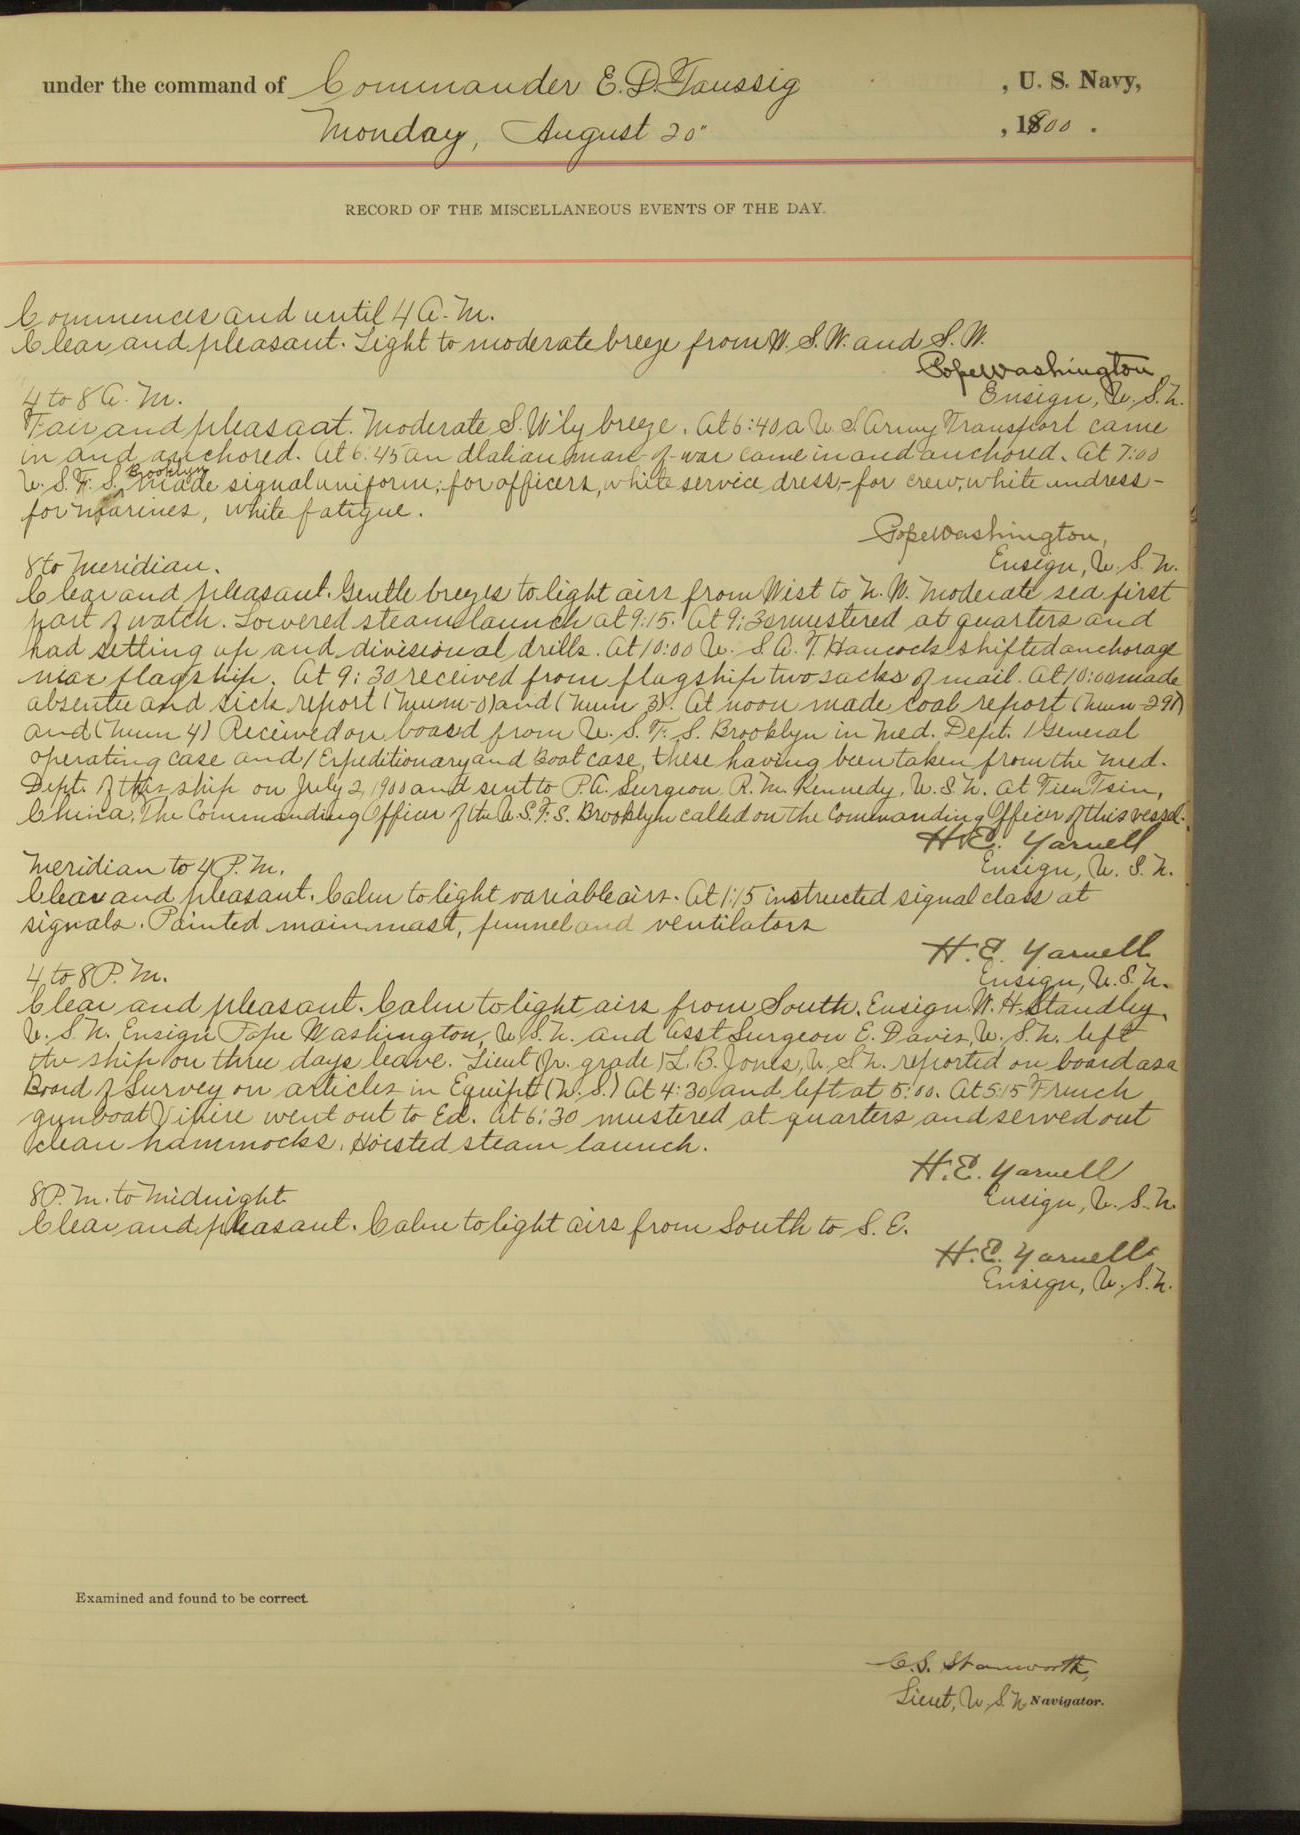 under the command of Commander E. D. Taussig , U. S. Navy,
Monday, August 20" , 1900 .
RECORD OF THE MISCELLANEOUS EVENTS OF THE DAY.
Commences and until 4 A.M.
Clear and pleasant. Light to moderate breeze from W.S.W. and S.W.
Pope Washington
Ensign, U.S.N.
4 to 8 A.M.
Fair and pleasaat. Moderate S.W'ly breeze. At 6:40 a U.S. Army Transport came
in and anchored. At 6:45 an Italian man-of-war came in and anchored. At 7:00
U.S.F.S. Brooklyn made signal uniform; for officers, white service dress,- for crew, white undress-
for marines, white fatigue.
Pope Washington,
Ensign, U.S.N.
8 to Meridian.
Clear and pleasant. Gentle breezes to light airs from West to N.W. Moderate sea first
part of watch. Lowered steam launch at 9:15. At 9:30 mustered at quarters and
had setting up and divisional drills. At 10:00 U.S.A.T. Hancock shifted anchorage
near flagship. At 9:30 received from flagship two sacks of mail. At 10:00 made
absentee and sick report (Num-0) and (Num 3). At noon made coal report (Num-297)
and (Num 4) Received on board from U.S.F.S. Brooklyn in Med. Dept. 1 General
operating case and 1 Expeditionary and Boat case, these having been taken from the Med.
Dept. of this ship on July 2, 1900 and sent to P.A. Surgeon R.M. Kennedy, U.S.N. at Tien Tsin,
China. The Commanding Officer of the U.S.F.S. Brooklyn called on the Commanding Officer of this vessel.
H.E. Yarnell
Ensign, U.S.N.
Meridian to 4 P.M.
Clear and pleasant. Calm to light variable airs. At 1:15 instructed signal class at
signals. Painted mainmast, funnel and ventilators
H.E. Yarnell
Ensign, U.S.N.
4 to 8 P.M.
Clear and pleasant. Calm to light airs from South. Ensign W.H. Standley
U.S.N. Ensign Pope Washington, U.S.N. and Asst Surgeon E. Davis, U.S.N. left
the ship on three days leave. Lieut (Jr. grade) L.B. Jones, U.S.N. reported on board as a
Board of Survey on articles in Equipt (N.S.) At 4:30 and left at 5:00. At 5:15 French
gunboat Vipire went out to Ed. At 6:30 mustered at quarters and served out
clean hammocks. Hoisted steam launch.
H.E. Yarnell
Ensign, U.S.N.
8 P.M. to Midnight
Clear and pleasant. Calm to light airs from South to S.E.
H.E. Yarnell
Ensign, U.S.N.
Examined and found to be correct.
C.S. Stanworth,
Lieut, U.S.N. Navigator.